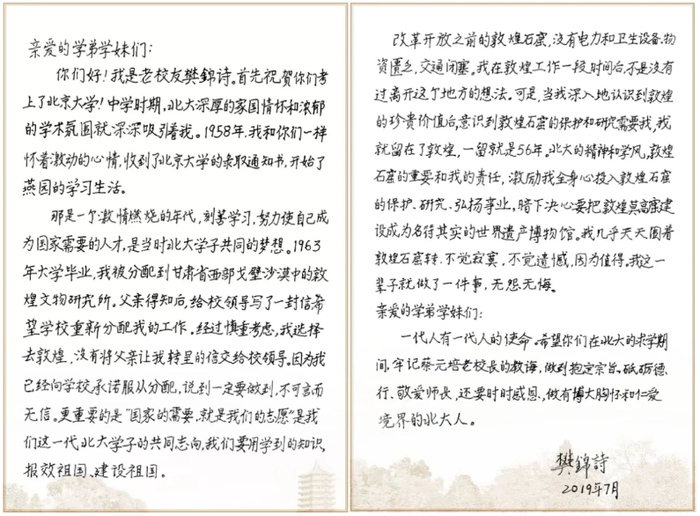 亲爱的学弟学妹们：
你们好！我是老校友樊錦诗。首先祝贺你们考
上了北京大学！中学时期，北大深厚的家国情怀和浓郁
的学术氛围就深深吸引着我。1958年，我和你们一样
怀着激动的心情，收到了北京大学的录取通知书，开始了
燕园的学习生活。
那是一个激情燃烧的年代，刻苦学习，努力使自己成
为国家需要的人才，是当时北大学子共同的梦想。1963
年大学毕业，我被分配到甘肃省西部戈壁沙漠中的敦
煌文物研究所。父亲得知后，给校领导写了一封信希
望学校重新分配我的工作。经过慎重考虑，我选择
去敦煌，没有将父亲让我转呈的信交给校领导。因为我
已经向学校承诺服从分配，说到一定要做到，不可言而
无信。更重要的是“国家的需要，就是我们的志愿”是我
们这一代北大学子的共同志向，我们要用学到的知识，
报效祖国、建设祖国。
改革开放之前的敦煌石窟，没有电力和卫生设备，物
资匮乏，交通闭塞。我在敦煌工作一段时间后，不是没有
过离开这个地方的想法。可是，当我深入地认识到敦煌
的珍贵价值后，意识到敦煌石窟的保护和研究需要我，我
就留在了敦煌，一留就是56年。北大的精神和学风，敦煌
石窟的重要和我的责任，激励我全身心投入敦煌石窟
的保护、研究、弘扬事业，暗下决心要把敦煌莫高窟建
设成为名符其实的世界遗产博物馆。我几乎天天围着
敦煌石窟转，不觉寂寞，不觉遗憾，因为值得。我这一
辈子就做了一件事，无怨无悔。
亲爱的学弟学妹们：
一代人有一代人的使命。希望你们在北大的求学期
间，牢记蔡元培老校长的教诲，做到抱定宗旨、砥砺德
行、敬爱师长，还要时时感恩，做有博大胸怀和仁爱
境界的北大人。
樊錦诗
2019年7月